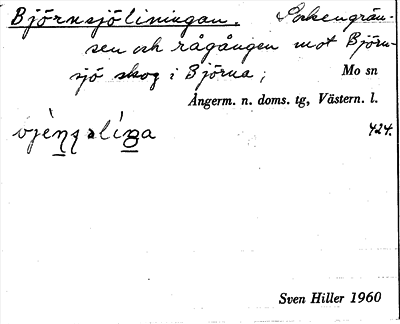 Björnsjöliningan. Sockengrän-
sen och rågången mot Björn-
sjö skog i Björna; Mo sn
Ångerm. n. doms. tg, Västern. l.
424.
Sven Hiller 1960